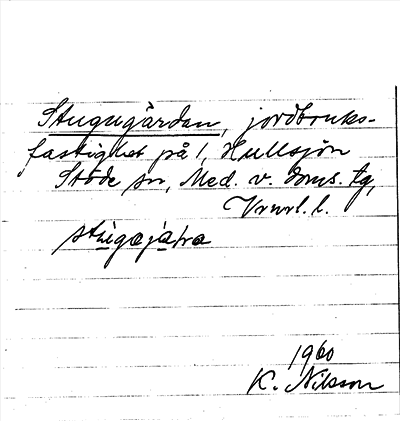 Stugugärdan, jordbruks-
fastighet på 1, Hullsjön
Stöde sn, Med. v. doms. tg,
Vnrl. l.
1960
K. Nilsson